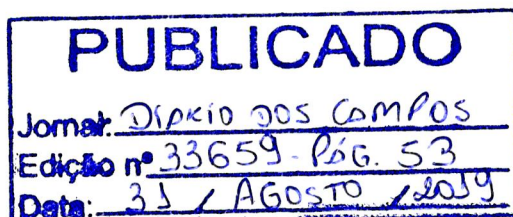 PUBLICADO
Jornal: DIÁRIO DOS CAMPOS
Edição nº 33659 - PÁG. 53
Data: 31 / AGOSTO / 2019